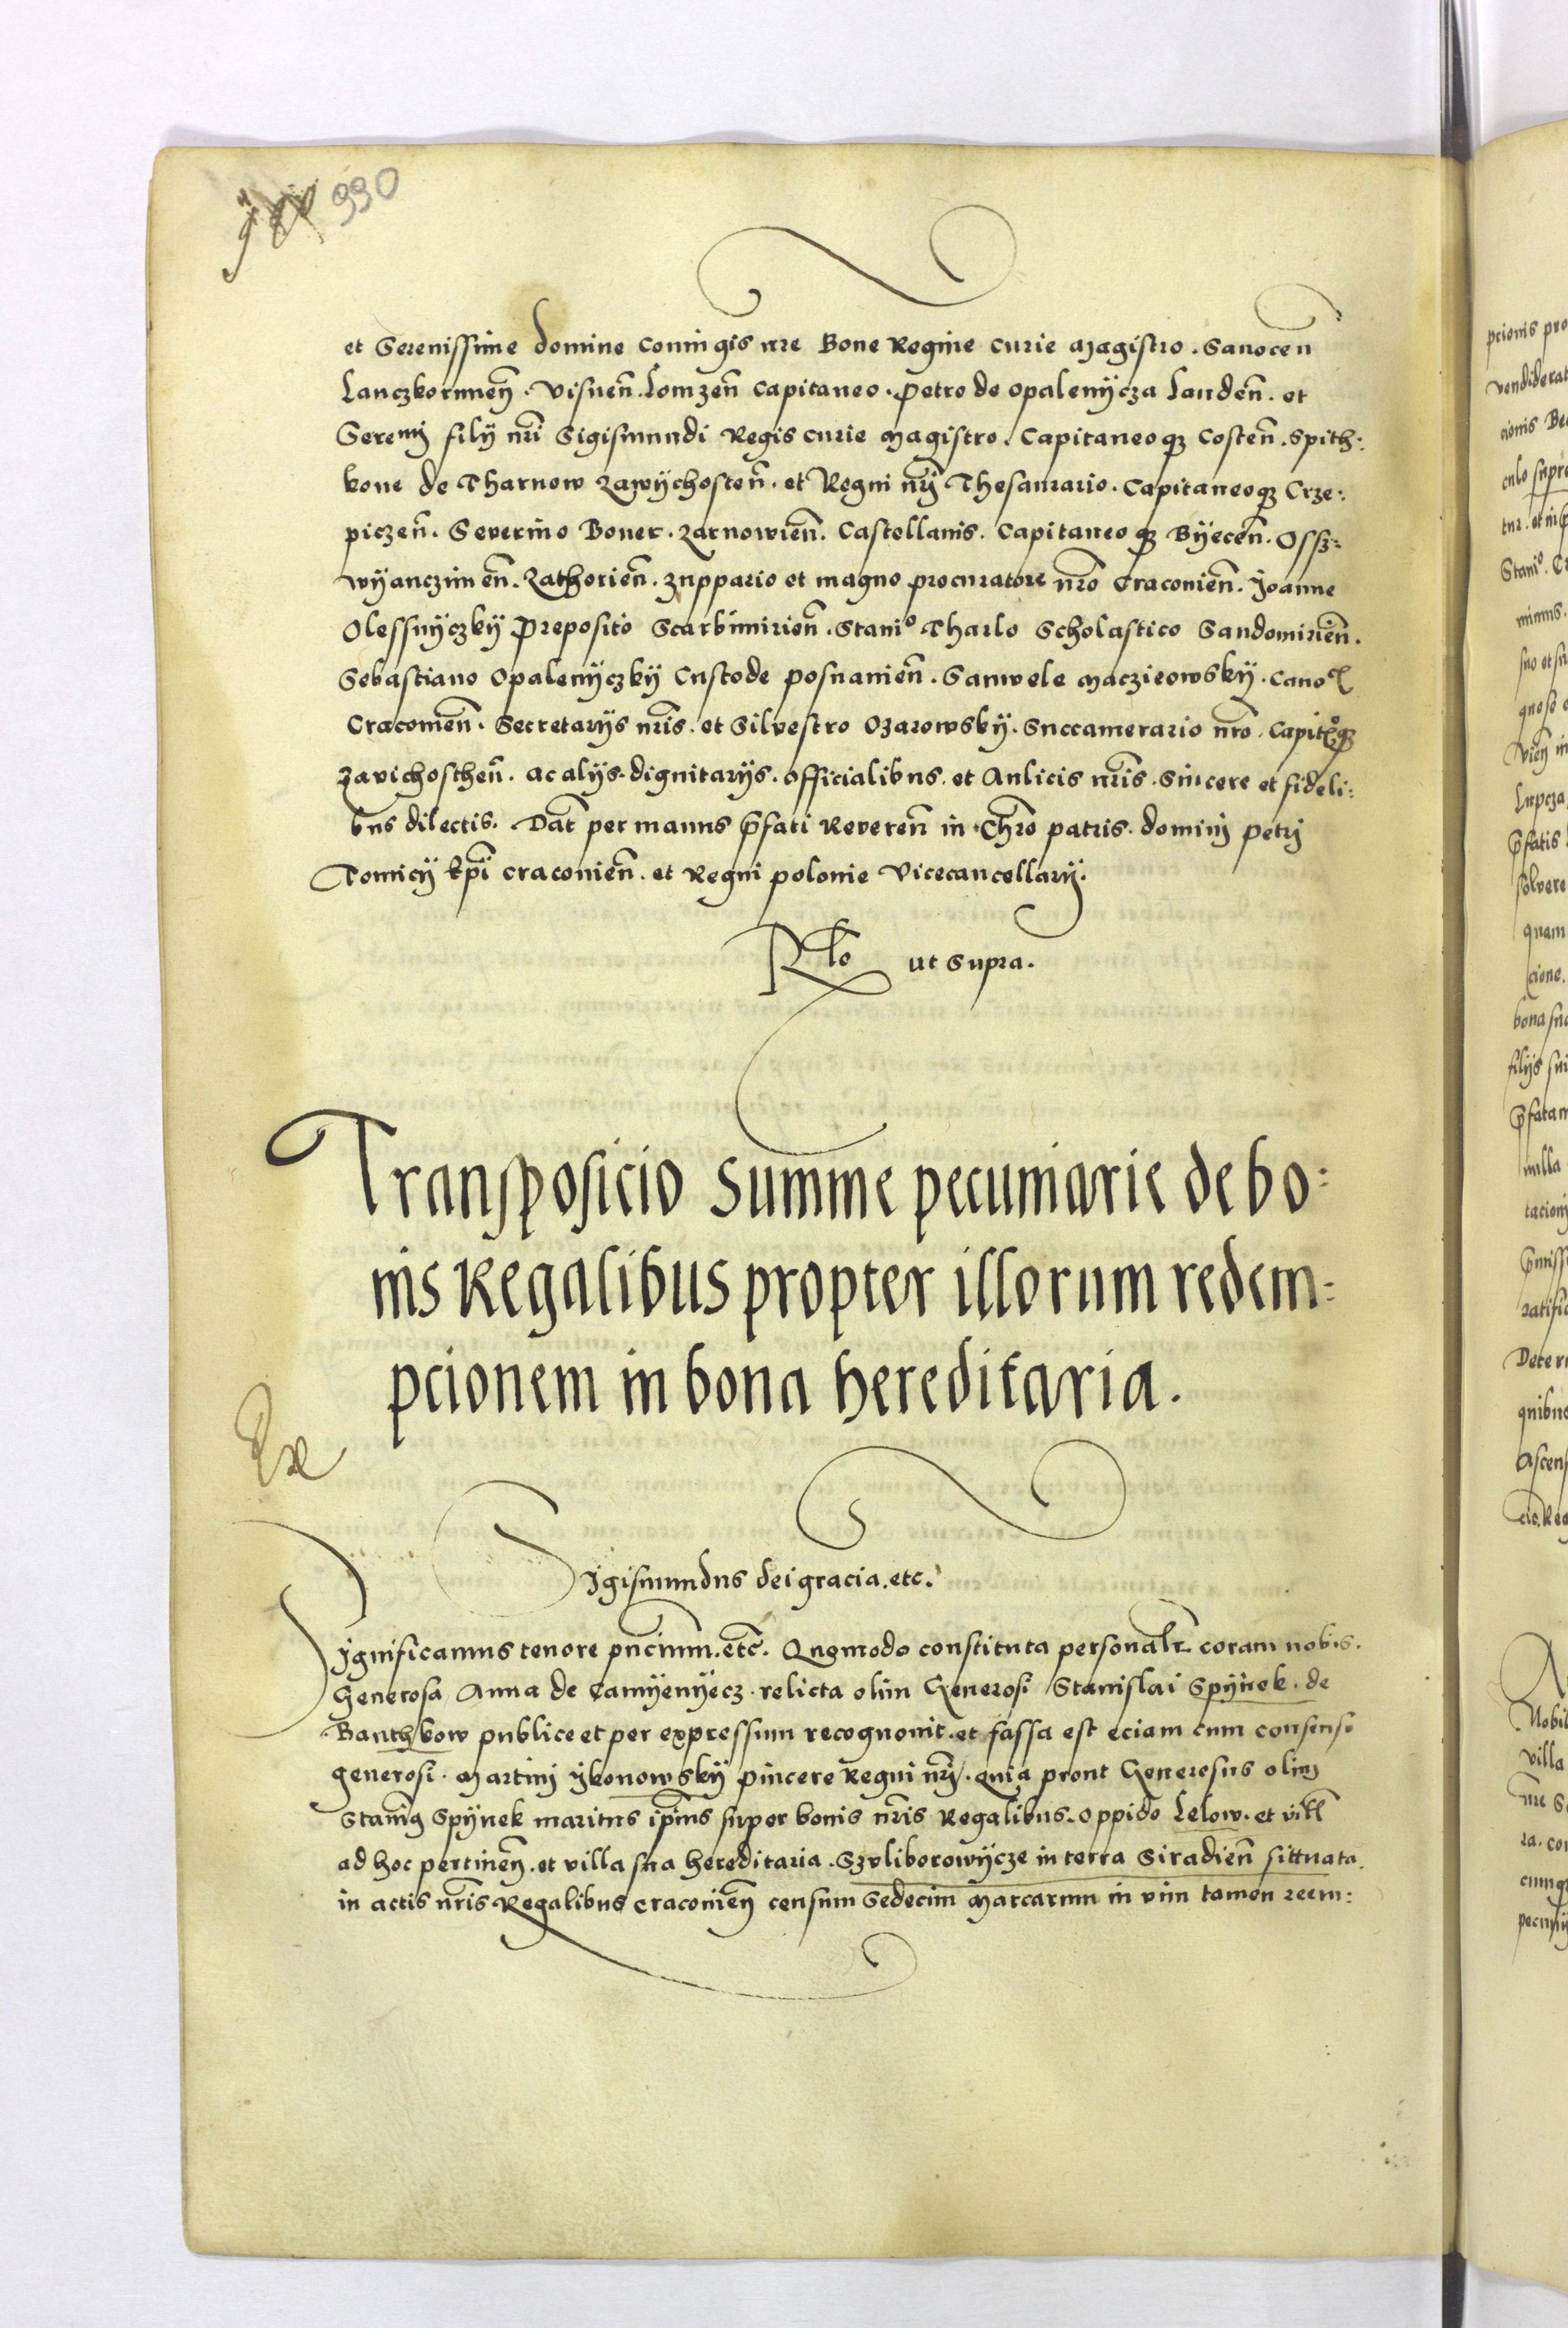 990
et Serenissime domine coniugis nre Bone Regine curie magistro . Sanocen̄
Lanczkorunen̄ . Visnen̄ . Lomzen̄ capitaneo . Petro de opalenÿcza Landen̄ . et
Serenj filÿ nr̄i Sigismundi Regis curie magistro . Capitaneoqȝ Costen̄ . Spith:
kone de Tharnow zawÿchosten̄ . et Regni nr̄j Thesaurario . Capitaneoqȝ Crze:
piczen̄ . Severino Boner . zarnowien̄ . Castellanis . Capitaneoqȝ Bÿecen̄ . Ossz:
wÿanczimen̄ . zathorien̄ . zuppario et magno procuratore nr̄o Craconien̄ . Joanne
Olessnÿczkÿ Preposito Scarbimirien̄ . Stanio Tharlo Scholastico Sandomirien̄ .
Sebastiano Opalenÿczkÿ Custode posnanien̄ . Samuele maczieowskÿ . Cano
Cracomen̄ . Secretarÿs nr̄is . et Silvestro Ozarowskÿ . Succamerario nr̄o . Capitqȝ
zavichosthen̄ . ac alÿs . dignitarÿs . officialibus . et Aulicis nr̄is . sincere et fideli:
bus dilectis . Dat̄ per manus p̄fati Reveren̄ in Chr̄o patris . dominj petrj
Tomicÿ Ep̄i craconien̄ . et Regni polonie Vicecancellarÿ .
Rlo ut supra .
Transposicio summe pecuniarie de bo:
nis Regalibus propter illorum redem:
pcionem in bona hereditaria .
Sigismundus dei gracia . etc .
Significamus tenore pn̄cium . etc̄ . Quomodo constituta personalr̄ . coram nobis .
Generosa Anna de Camÿenÿecz . relicta olim Generosi Stanislai Spÿnek . de
Banthkow publice et per expressum recognovit . et fassa est eciam cum consenso
generosi . Martinj ÿkonowskÿ pincere Regni nr̄j . quia prout Generosus olim
Stanis Spÿnek maritus ip̄ius super bonis nr̄is Regalibus . oppido Lelow . et vill
ad hoc pertinen̄ . et villa sua hereditaria . Szvliborowÿcze in terra Siradien̄ sittuata .
in actis nr̄is Regalibus craconien̄ censum Sedecim Marcarum in vim tamen reem: